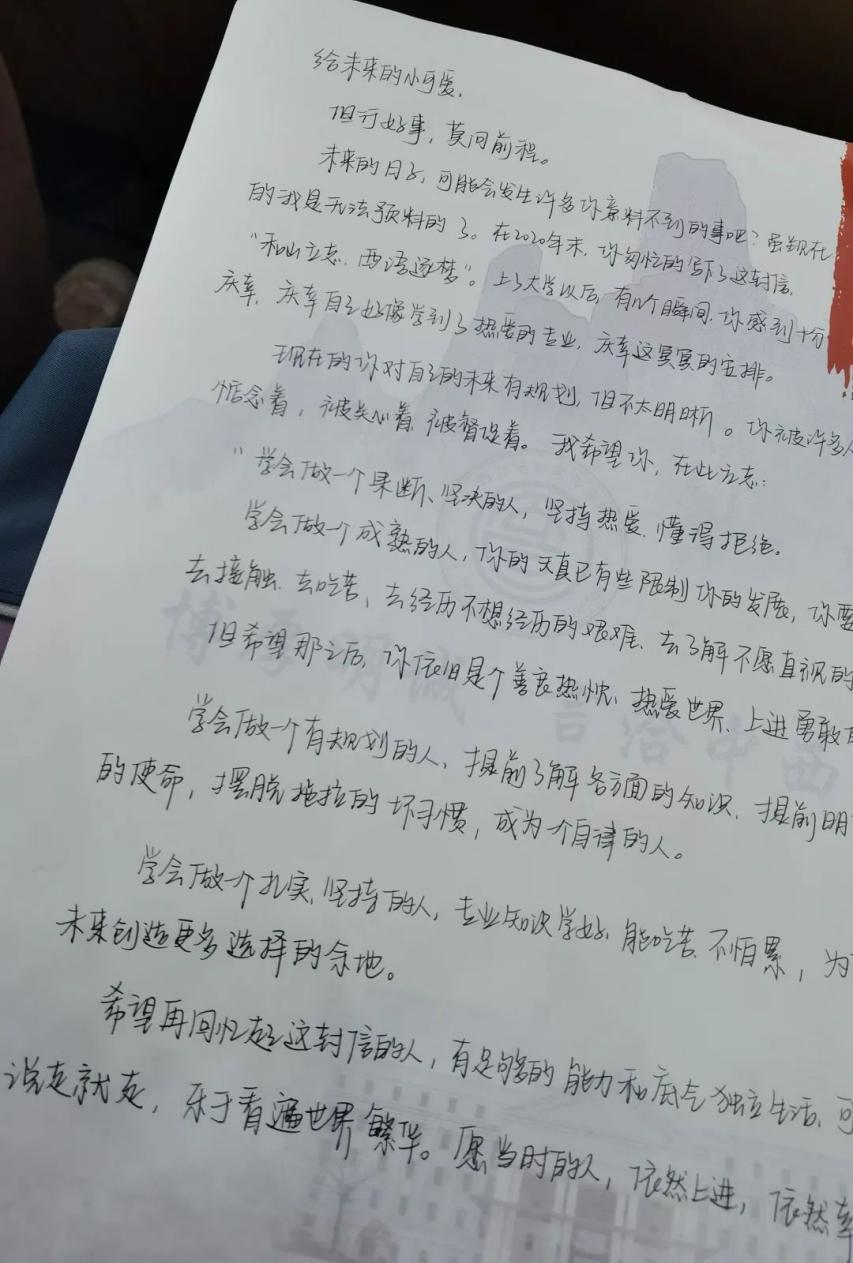 给未来的小可爱,
但行好事,莫问前程。
未来的日子,可能会发生许多你意料不到的事吧?虽现在
的我是无法预料的了。在2020年末,你匆忙的写下了这封信,
"和山立志、西语逐梦"。上了大学以后,有几个瞬间,你感到十分
庆幸,庆幸自己好像学到了热爱的专业,庆幸这冥冥的安排。
现在的你对自己的未来有规划,但不太明晰。你被许多人
惦念着,被关心着、被督促着。我希望你,在此立志:
"学会做一个果断、坚决的人,坚持热爱、懂得拒绝。
学会做一个成熟的人,你的天真已有些限制你的发展,你要
去接触、去吃苦、去经历不想经历的艰难、去了解不愿直视的
但希望那之后,你依旧是个善良热忱、热爱世界、上进勇敢的
学会做一个有规划的人,提前了解各方面的知识、提前明
的使命,摆脱拖拉的坏习惯,成为个自律的人。
学会做一个扎实、坚持的人,专业知识学好、能吃苦、不怕累,为
未来创造更多选择的余地。
希望再回忆起这封信的人,有足够的能力和底气独立生活、可
说走就走,乐于看遍世界繁华。愿当时的人,依然上进,依然幸
博学明诚 言洽中西